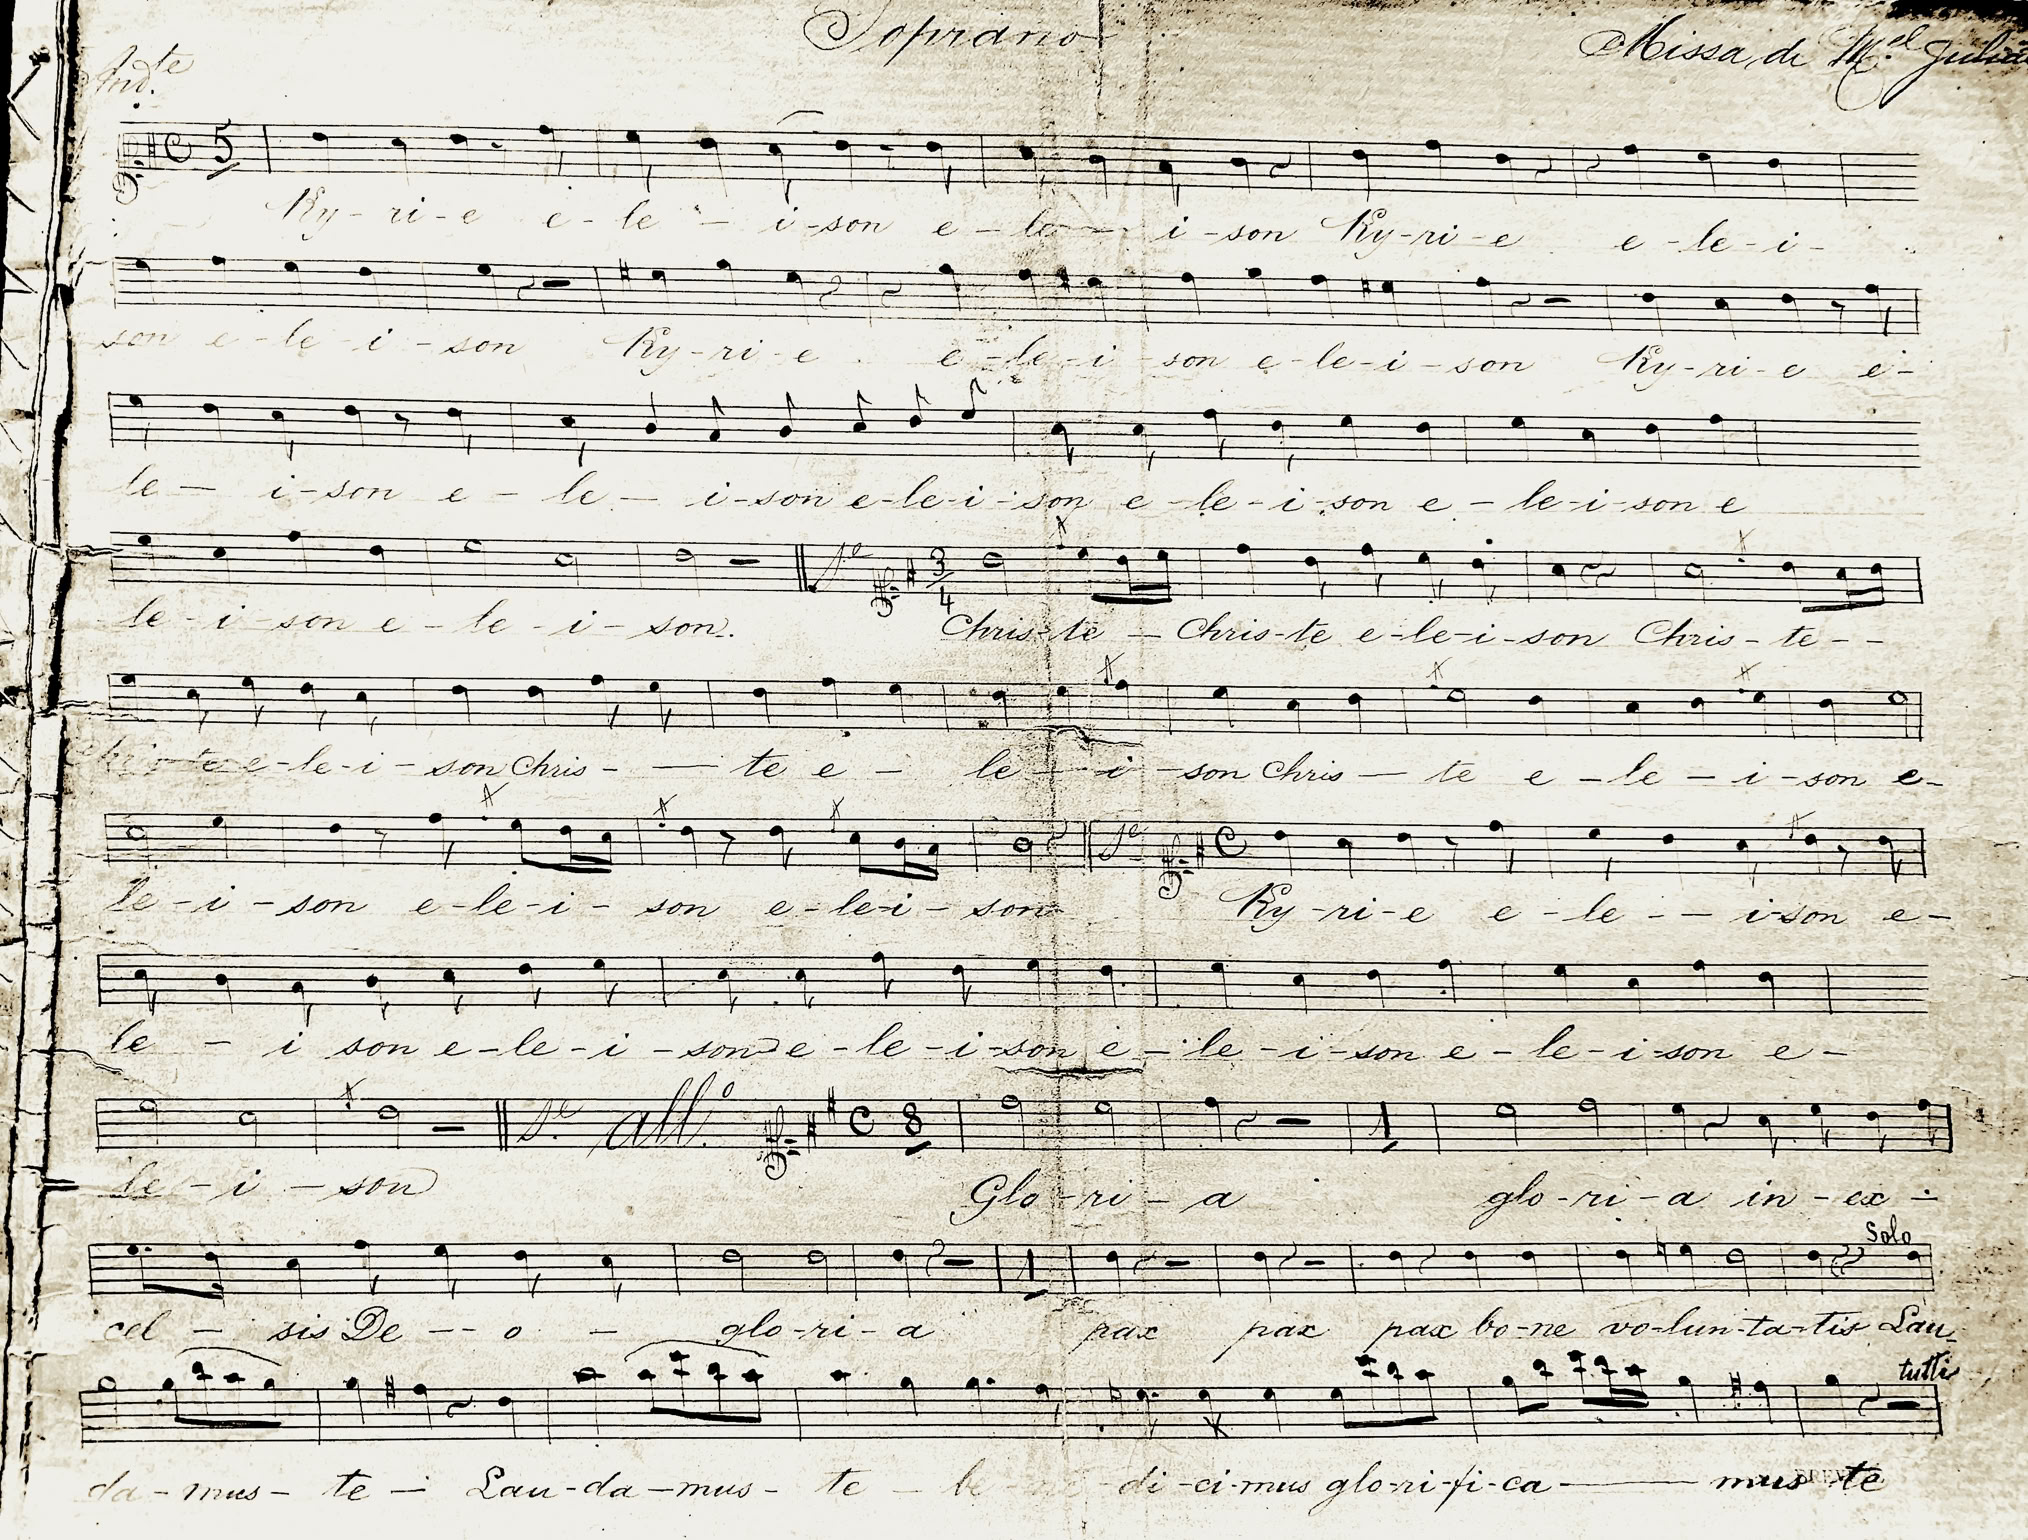 Soprano
Missa, di M.el
And.te
5
Ky-ri-e e-le - i-son e-le - i-son Ky-ri-e e-le-i-
son e-le-i-son Ky-ri-e e-le-i-son e-le-i-son Ky-ri-e e-
le - i-son e-le - i-son e-le-i-son e-le-i-son e-le-i-son e
3/4
le-i-son e-le-i-son. Chris-te - Chris-te e-le-i-son Chris-te--
Chris-te e-le-i-son Chris- - te e - le - i-son Chris - te e-le-i-son e-
le-i-son e-le-i-son e-le-i-son Ky-ri-e e-le - - i-son e-
le - i son e-le-i-son e-le-i-son e-le-i-son e-le-i-son e-
S.e all.o 8
le-i-son Glo-ri-a glo-ri-a in-ex-
Solo
cel - sis De - - o - glo-ri-a pax pax pax bo-ne vo-lun-ta-tis Lau-
tutti
da-mus-te - Lau-da-mus-te - be-ne-di-ci-mus glo-ri-fi-ca - mus te